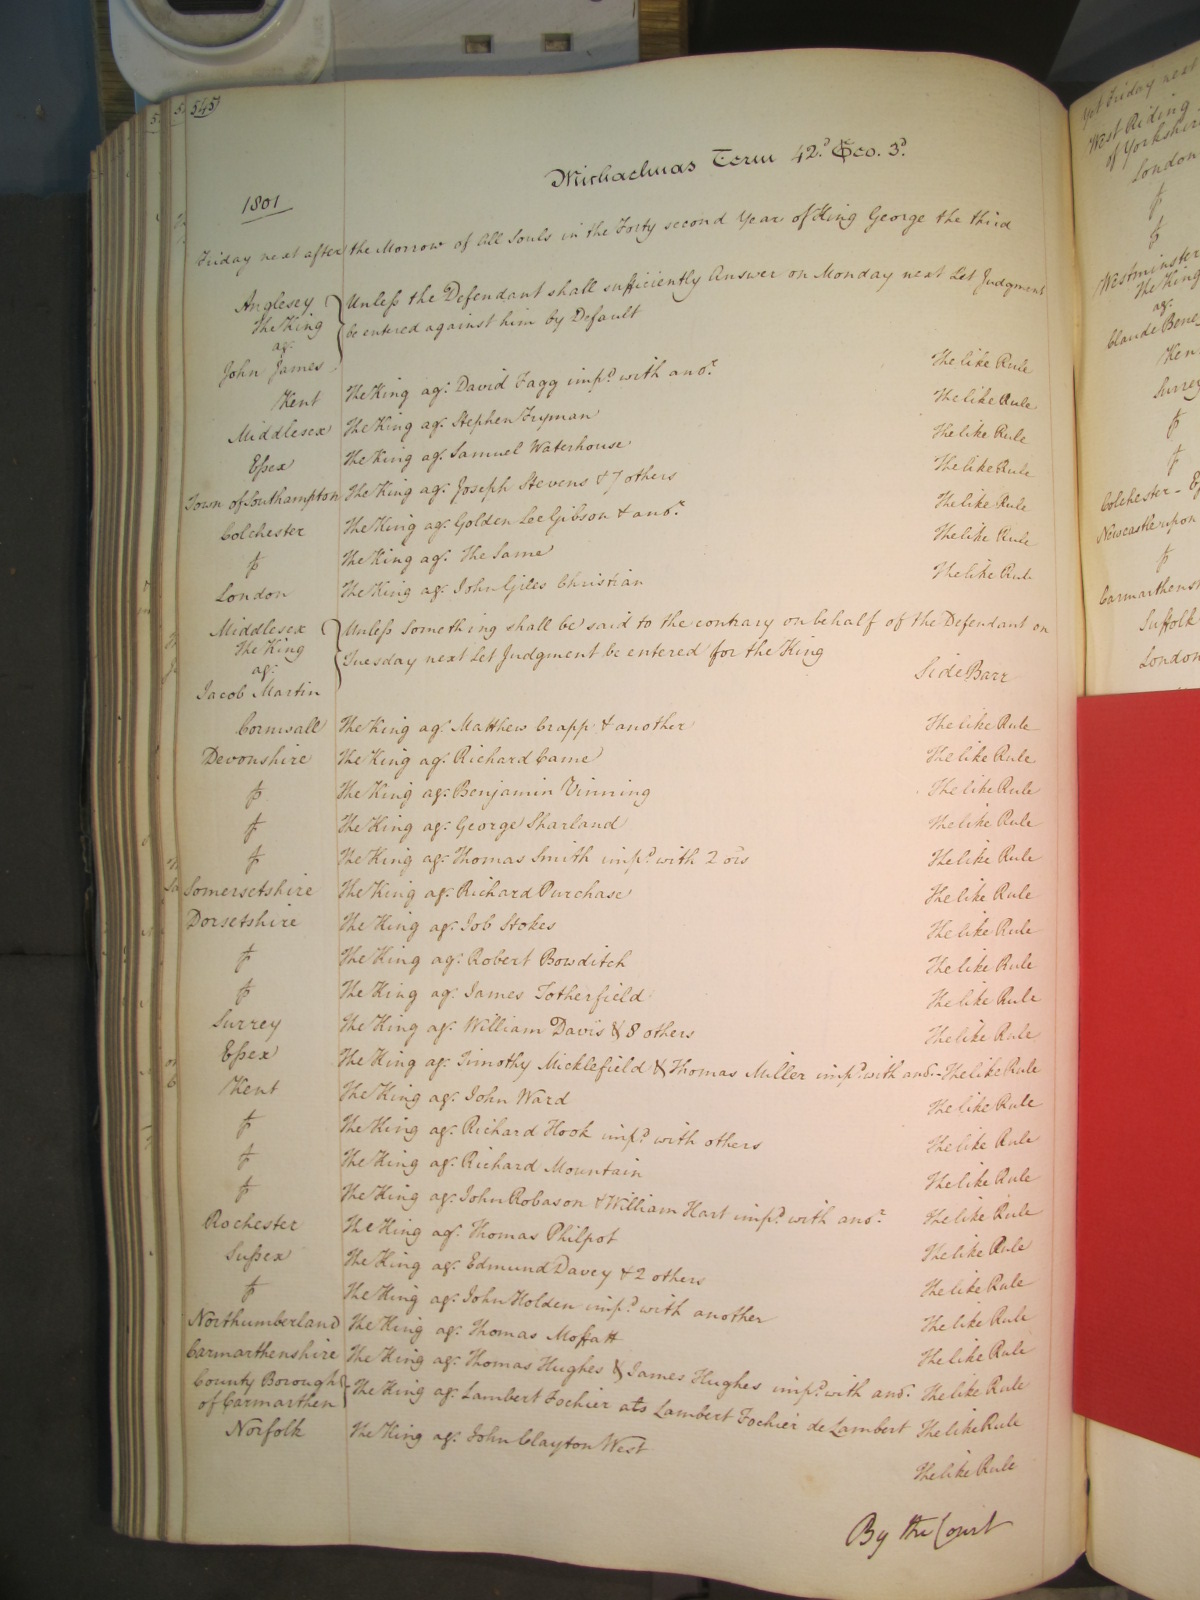 545
Michaelmas Term 42.d Geo. 3.d
1801
Friday next after the Morrow of All Souls in the Forty second Year of King George the third
Anglesey
The King
ag.t
John James
Unless the Defendant shall sufficiently Answer on Monday next Let Judgment
be entered against him by Default
Kent The King ag.t David Fagg imp.d with ano.r The like Rule
Middlesex The King ag.t Stephen Fryman The like Rule
Essex The King ag.t Samuel Waterhouse The like Rule
Town of Southampton The King ag.t Joseph Stevens & 7 others The like Rule
Colchester The King ag.t Golden Lee Gibson & ano.r The like Rule
fs The King ag.t The Same The like Rule
London The King ag.t John Giles Christian The like Rule
Middlesex
The King
ag.t
Jacob Martin
Unless Something shall be said to the contrary on behalf of the Defendant on
Tuesday next Let Judgment be entered for the King
Side Barr
Cornwall The King ag.t Matthew Crapp & another The like Rule
Devonshire The King ag.t Richard Came The like Rule
fs The King ag.t Benjamin Vinning The like Rule
fs The King ag.t George Sharland The like Rule
fs The King ag.t Thomas Smith imp.d with 2 ors The like Rule
Somersetshire The King ag.t Richard Purchase The like Rule
Dorsetshire The King ag.t Job Stokes The like Rule
fs The King ag.t Robert Bowditch The like Rule
fs The King ag.t James Totherfield The like Rule
Surrey The King ag.t William Davis & 8 others The like Rule
Essex The King ag.t Timothy Micklefield & Thomas Miller imp.d with ano.r - The like Rule
Kent The King ag.t John Ward The like Rule
fs The King ag.t Richard Hook imp.d with others The like Rule
fs The King ag.t Richard Mountain The like Rule
fs The King ag.t John Robason & William Hart imp.d with ano.r The like Rule
Rochester The King ag.t Thomas Philpot The like Rule
Sussex The King ag.t Edmund Davey & 2 others The like Rule
fs The King ag.t John Holden imp.d with another The like Rule
Northumberland The King ag.t Thomas Moffatt The like Rule
Carmarthenshire The King ag.t Thomas Hughes & James Hughes imp.d with ano.r The like Rule
County Borough
of Carmarthen The King ag.t Lambert Fochier ats Lambert Fochier de Lambert The like Rule
Norfolk The King ag.t John Clayton West The like Rule
By the Court
Yet Friday next
West Riding
of Yorkshire
London
fs
fs
Westminster
The King
ag.t
Claude Bene
Ken
Surrey
fs
fs
Colchester - Es
Newcastle upon
fs
Carmarthens
Suffolk
London